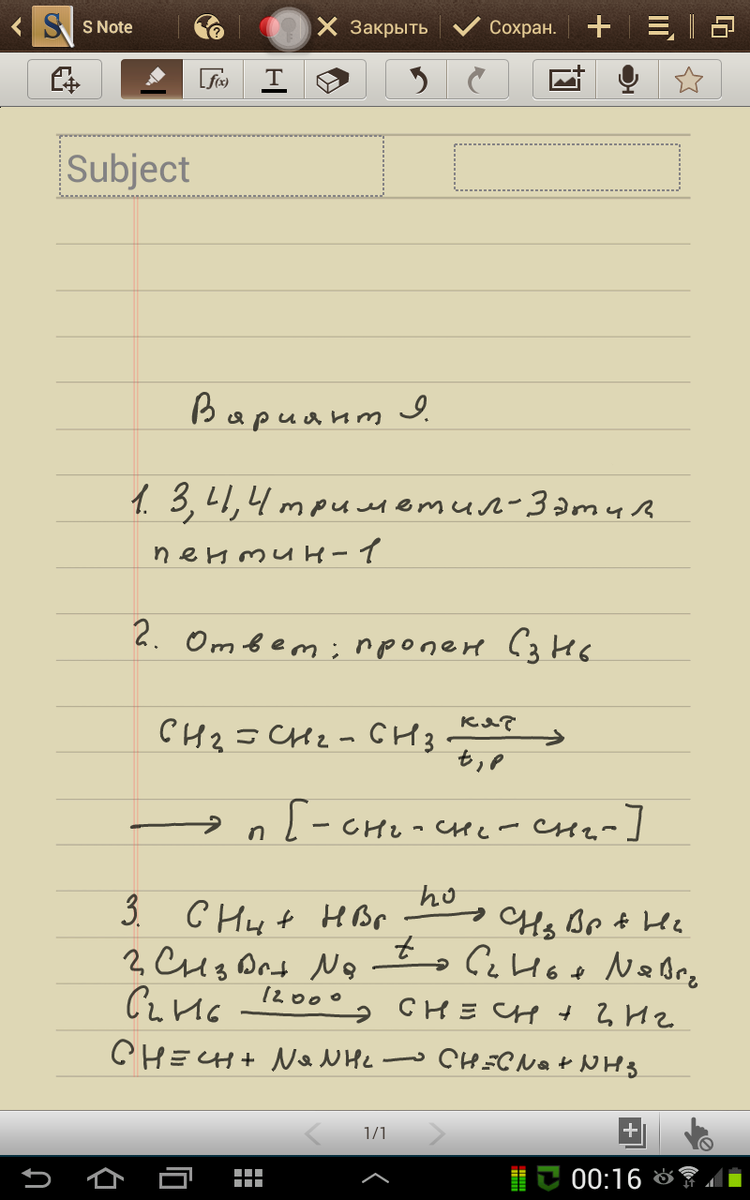 S Note Закрыть Сохран.
f(x) T
Subject
Вариант 9.
1. 3,4,4 триметил-3этил
пентин-1
2. Ответ: пропен C3H6
CH2=CH2-CH3 кат
t,p
n[-CH2-CH2-CH2-]
3. CH4+ HBr hυ CH3Br+H2
2CH3Br+ Na t C2H6+ NaBr2
C2H6 12000 CH≡CH + 2H2
CH≡CH+ NaNH2 CH≡CNa+NH3
1/1
00:16